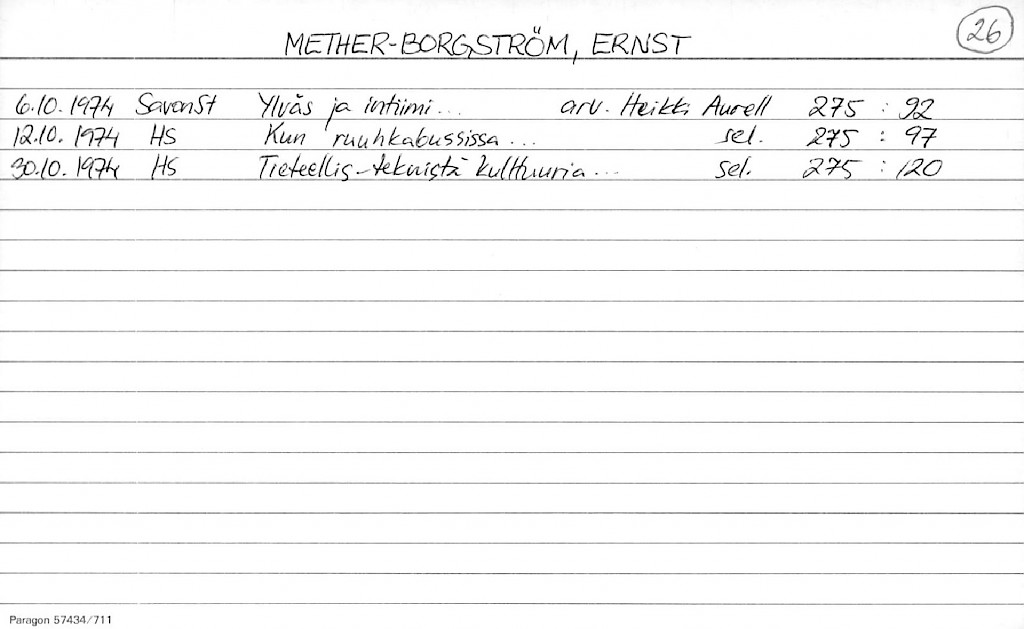 METHER-BORGSTRÖM, ERNST 26
6.10.1974 SavonSt Ylväs ja intiimi... arv. Heikki Aurell 275 : 92
12.10.1974 HS Kun ruuhkabussissa... sel. 275 : 97
30.10.1974 HS Tieteellis-teknistä kulttuuria... sel. 275 : 120
Paragon 57434/711